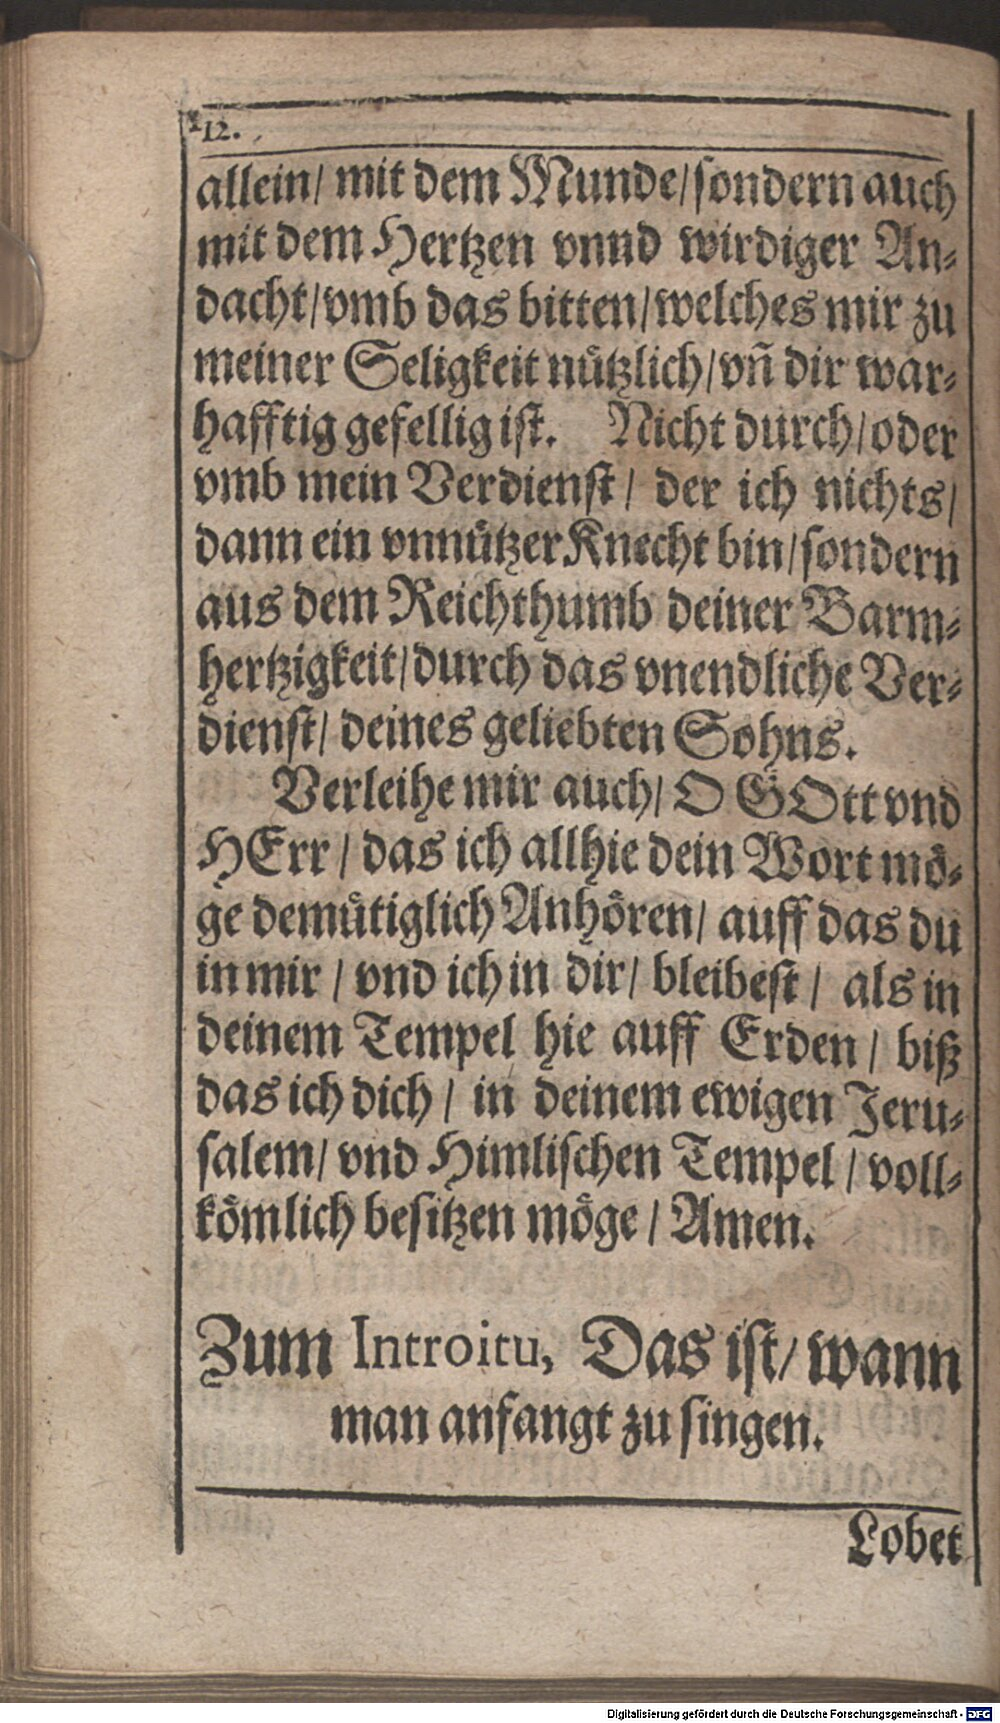 112.
allein/ mit dem Munde/ sondern auch
mit dem Hertzen vnnd wirdiger An-
dacht/ vmb das bitten/ welches mir zu
meiner Seligkeit nuͤtzlich/ vñ dir war-
hafftig gefellig ist. Nicht durch/ oder
vmb mein Verdienst/ der ich nichts/
dann ein vnnuͤtzer Knecht bin/ sondern
aus dem Reichthumb deiner Barm-
hertzigkeit/ durch das vnendliche Ver-
dienst/ deines geliebten Sohns.
Verleihe mir auch/ O GOtt vnd
HErr/ das ich allhie dein Wort moͤ-
ge demuͤtiglich Anhoͤren/ auff das du
in mir/ vnd ich in dir/ bleibest/ als in
deinem Tempel hie auff Erden/ biß
das ich dich/ in deinem ewigen Jeru-
salem/ vnd Himlischen Tempel/ voll-
koͤmlich besitzen moͤge/ Amen.
Zum Introitu, Das ist/ wann
man anfangt zu singen.
Lobet
Digitalisierung gefördert durch die Deutsche Forschungsgemeinschaft - DFG